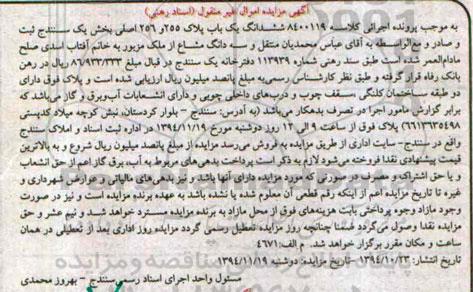 آگهی مزایده اموال غیر منقول (اسناد رهنی)
به موجب پرونده اجرائی کلاسه ۸۴۰۰۱۱۹ ششدانگ یک باب پلاک ۲۵۵و ۲۵۶ اصلی بخش یک سنندج ثبت
و صادر و مع‌الواسطه به آقای عباس محمدیان منتقل و سه دانگ مشاع از ملک مزبور به خانم آفتاب اسدی صلح
مادام‌العمر شده است طبق سند رهنی شماره ۱۱۳۹۳۹ دفترخانه یک سنندج در قبال مبلغ ۸۶/۹۳۳/۳۳۳ ریال در رهن
بانک رفاه قرار گرفته و طبق نظر کارشناس رسمی به مبلغ پانصد میلیون ریال ارزیابی شده است و پلاک فوق دارای
دو طبقه ساختمان کلنگی مسقف چوب و درب‌های داخلی چوبی و دارای انشعابات آب‌وبرق و گاز می‌باشد که
برابر گزارش مامور اجرا در تصرف بدهکار می‌باشد (به آدرس: سنندج - بلوار کردستان، نبش کوچه میلاد کدپستی
۶۶۱۶۷۳۵۴۹۸) پلاک فوق از ساعت ۹ الی ۱۲ روز دوشنبه مورخ ۱۳۹۴/۱۱/۱۹ در اداره ثبت اسناد و املاک سنندج
واقع در سنندج- سایت اداری از طریق مزایده به فروش می‌رسد مزایده از مبلغ پانصد میلیون ریال شروع و به بالاترین
قیمت پیشنهادی نقدا فروخته می‌شود لازم به ذکر است پرداخت بدهی‌های مربوط به آب، برق گاز اعم از حق انشعاب
و یا حق اشتراک و مصرف در صورتی که مورد مزایده دارای آنها باشد و نیز بدهی‌های مالیاتی و عوارض شهرداری و
غیره تا تاریخ مزایده اعم از اینکه رقم قطعی آن معلوم شده یا نشده باشد به عهده برنده مزایده است و نیز در صورت
وجود مازاد وجوه پرداختی بابت هزینه‌های فوق از محل مازاد به برنده مزایده مسترد خواهد شد و نیم عشر و حق
مزایده نقدا وصول می‌گردد ضمنا چنانچه روز مزایده تعطیل رسمی گردد مزایده روز اداری بعد از تعطیلی در همان
ساعت و مکان مقرر برگزار خواهد شد. م الف: ۴۶۷۱
تاریخ انتشار: ۱۳۹۴/۱۰/۲۳ -تاریخ مزایده: دوشنبه ۱۳۹۴/۱۱/۱۹
مسئول واحد اجرای اسناد رسمی سنندج - بهروز محمدی